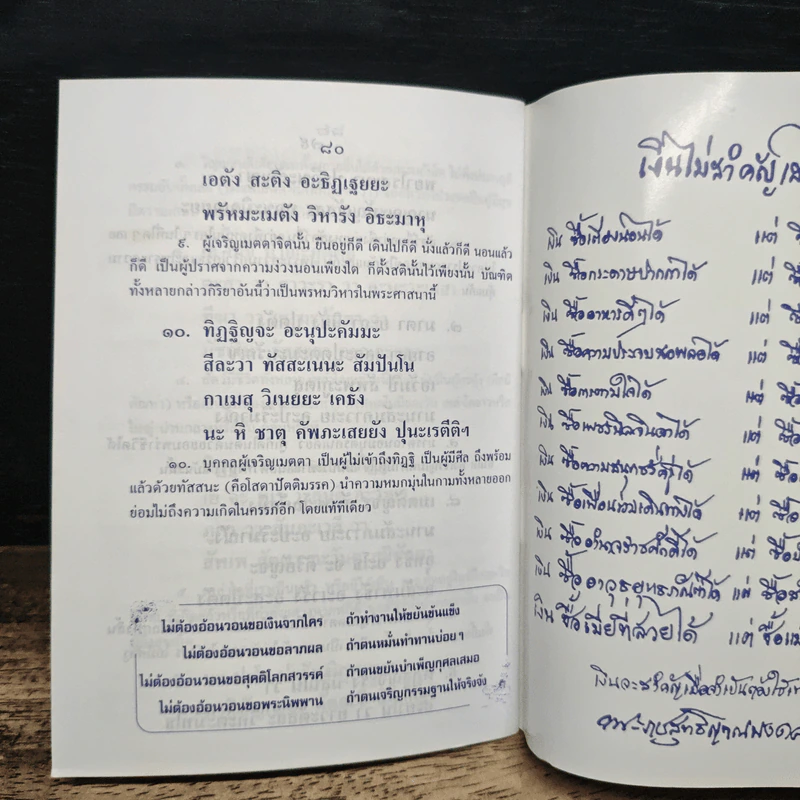 ๘๐
เอตัง สะติง อะธิฏเฐยยะ
พรัหมะเมตัง วิหารัง อิธะมาหุ
๙. ผู้เจริญเมตตาจิตนั้น ยืนอยู่ก็ดี เดินไปก็ดี นั่งแล้วก็ดี นอนแล้ว
ก็ดี เป็นผู้ปราศจากความง่วงนอนเพียงใด ก็ตั้งสตินั้นไว้เพียงนั้น บัณฑิต
ทั้งหลายกล่าวกิริยาอันนี้ว่าเป็นพรหมวิหารในพระศาสนานี้
๑๐. ทิฏฐิญจะ อะนุปะคัมมะ
สีละวา ทัสสะเนนะ สัมปันโน
กาเมสุ วิเนยยะ เคธัง
นะ หิ ชาตุ คัพภะเสยยัง ปุนะเรตีติฯ
๑๐. บุคคลผู้เจริญเมตตา เป็นผู้ไม่เข้าถึงทิฏฐิ เป็นผู้มีศีล ถึงพร้อม
แล้วด้วยทัสสนะ (คือโสดาปัตติมรรค) นำความหมกมุ่นในกามทั้งหลายออก
ย่อมไม่ถึงความเกิดในครรภ์อีก โดยแท้ทีเดียว
ไม่ต้องอ้อนวอนขอเงินจากใคร ถ้าทำงานให้ขยันขันแข็ง
ไม่ต้องอ้อนวอนขอลาภผล ถ้าตนหมั่นทำทานบ่อยๆ
ไม่ต้องอ้อนวอนขอสุคติโลกสวรรค์ ถ้าตนขยันบำเพ็ญกุศลเสมอ
ไม่ต้องอ้อนวอนขอพระนิพพาน ถ้าตนเจริญกรรมฐานให้จริงจัง
เงินไม่สำคัญ
เงิน ซื้อเตียงนอนได้ แต่
เงิน ซื้อกระดาษปากกาได้ แต่ ซื้
เงิน ซื้ออาหารดีๆได้ แต่ ซื้
เงิน ซื้อความประจบสอพลอได้ แต่ ซื้
เงิน ซื้อการตามใจได้ แต่ ซื้
เงิน ซื้อเพชรนิลจินดาได้ แต่ ซื้
เงิน ซื้อความสนุกชั่วครู่ได้ แต่ ซื้อ
เงิน ซื้อเพื่อนร่วมเดินทางได้ แต่ ซื้อ
เงิน ซื้ออำนาจราชศักดิ์ได้ แต่ ซื้อ
เงิน ซื้ออาวุธยุทธภัณฑ์ได้ แต่ ซื้อ
เงิน ซื้อเมียที่สวยได้ แต่ ซื้อ
เงินจะสำคัญเมื่อจำเป็นต้องใช้